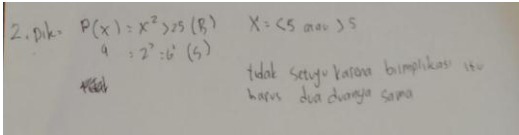 2. Dik = P(x) = x² > 25 (B) X = <5 atau >5
q = 2³ = 6 (S)
tidak setuju karena biimplikasi itu
harus dua duanya sama